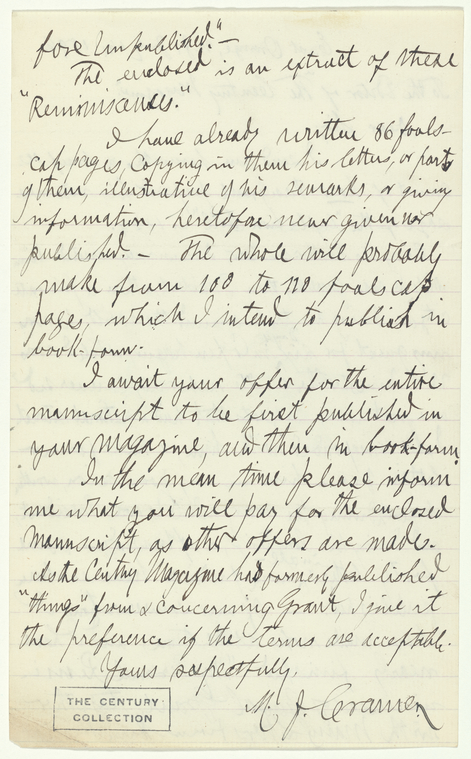 fore Unpublished."—
The enclosed is an extract of these
"Reminiscences."
I have already written 86 fools-
cap pages, copying in them his letters, or parts
of them, illustrative of his remarks, or giving
information, heretofore never given nor
published.— The whole will probably
make from 100 to 110 foolscap
pages, which I intend to publish in
book-form.
I await your offer for the entire
manuscript to be first published in
your magazine, and then in book-form.
In the mean time please inform
me what you will pay for the enclosed
manuscript, as other offers are made.
As the Century Magazine had formerly published
"things" from & concerning Grant, I give it
the preference if the terms are acceptable.
Yours respectfully.
M. J. Cramer.
THE CENTURY
COLLECTION